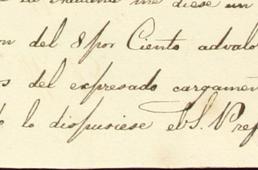 me diese un
on del 8 por Ciento advalo
s del expresado cargament
lo dispusiese el S. Pref